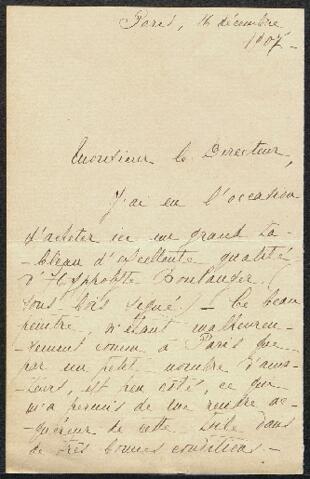 Paris, 16 décembre
1907 -
Monsieur le Directeur,
J'ai eu l'occasion
d'acheter ici un grand ta-
bleau d'excellente qualité
d'Hippolyte Boulanger
(sous bois signé) - Ce beau
peintre, n'étant malheureu-
sement connu à Paris que
par un petit nombre d'ama-
teurs, est peu coté, ce qui
m'a permis de me rendre ac-
quéreur de cette toile dans
de très bonnes conditions. -